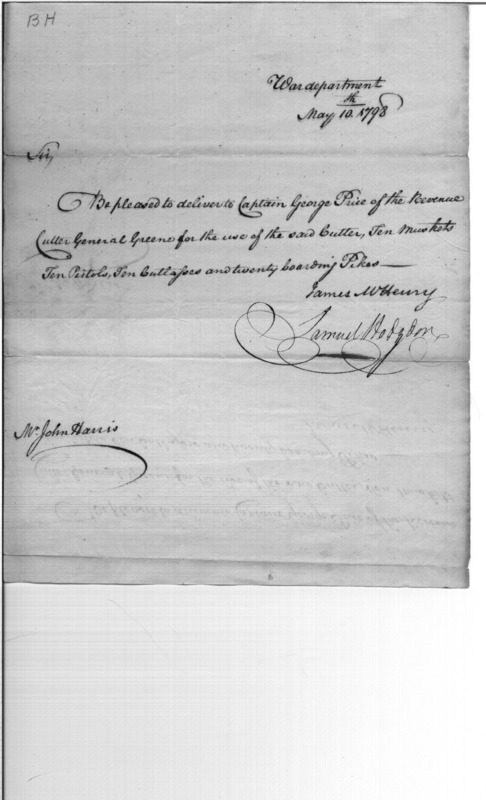 BH
War department
May 10.th 1798
Sir,
Be pleased to deliver to Captain George Price of the Revenue
Cutter General Greene for the use of the said Cutter, Ten Muskets
Ten Pistols, Ten Cutlasses and twenty boarding Pikes—
James McHenry
Samuel Hodgdon
Mr. John Harris